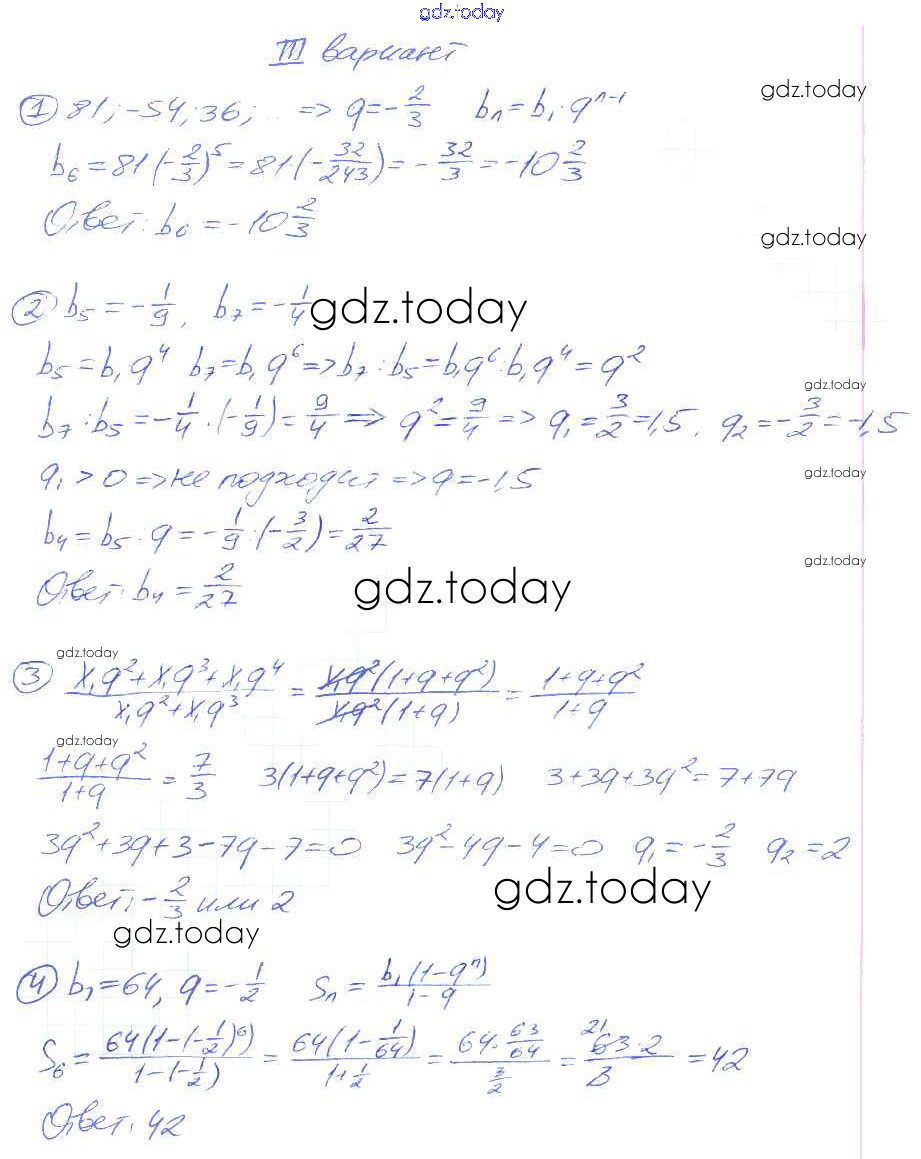 gdz.today
III вариант
gdz.today
① 81; -54; 36; ... => q = -2/3 bₙ = b₁·qⁿ⁻¹
b₆ = 81·(-2/3)⁵ = 81·(-32/243) = -32/3 = -10 2/3
Ответ: b₆ = -10 2/3
gdz.today
② b₅ = -1/9, b₇ = -1/4 gdz.today
b₅ = b₁q⁴ b₇ = b₁q⁶ => b₇:b₅ = b₁q⁶:b₁q⁴ = q²
gdz.today
b₇:b₅ = -1/4·(-1/9) = 9/4 => q² = 9/4 => q₁ = 3/2 = 1,5, q₂ = -3/2 = -1,5
q₁ > 0 => не подходит => q = -1,5
gdz.today
b₄ = b₅·q = -1/9·(-3/2) = 2/27
gdz.today
Ответ: b₄ = 2/27 gdz.today
gdz.today
③ (x₁q²+x₁q³+x₁q⁴)/(x₁q²+x₁q³) = x₁q²(1+q+q²)/(x₁q²(1+q)) = (1+q+q²)/(1+q)
gdz.today
(1+q+q²)/(1+q) = 7/3 3(1+q+q²) = 7(1+q) 3+3q+3q² = 7+7q
3q²+3q+3-7q-7=0 3q²-4q-4=0 q₁ = -2/3 q₂ = 2
Ответ: -2/3 или 2 gdz.today
gdz.today
④ b₁ = 64, q = -1/2 Sₙ = b₁(1-qⁿ)/(1-q)
S₆ = 64(1-(-1/2)⁶)/(1-(-1/2)) = 64(1-1/64)/(1+1/2) = (64·63/64)/(3/2) = 21 63·2/3 = 42
Ответ: 42